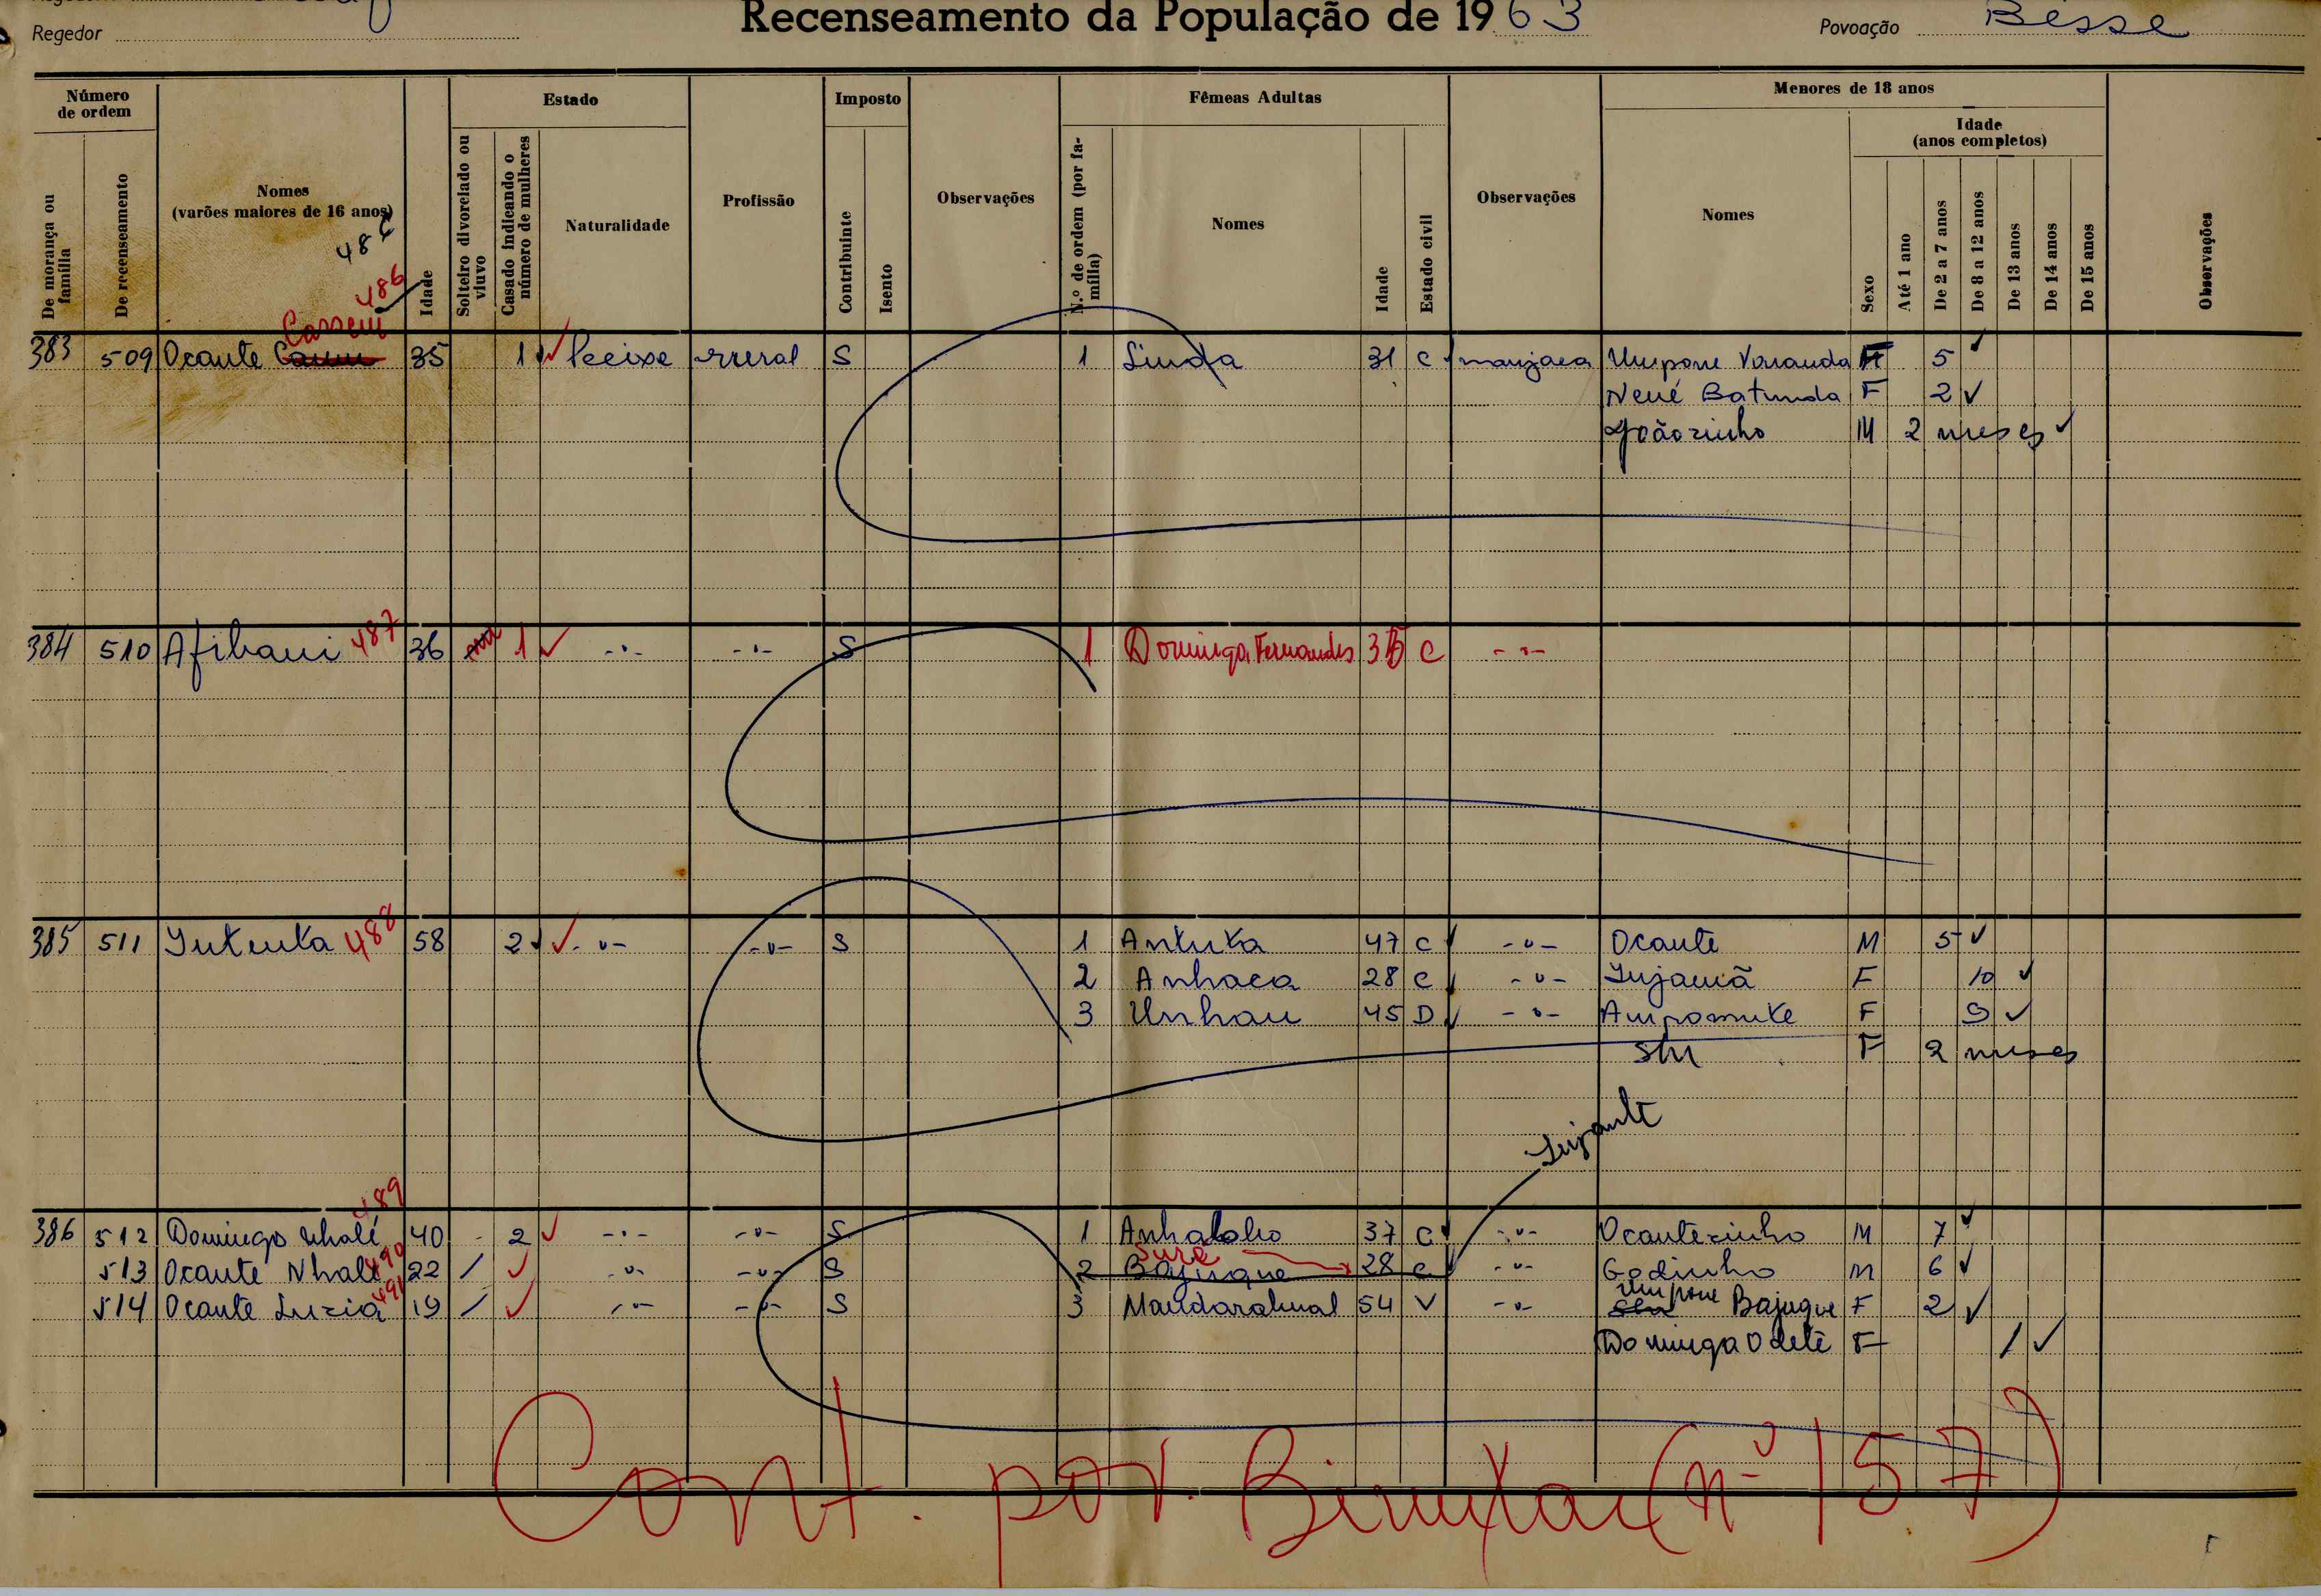 Regedor
Recenseamento da População de 1963
Povoação Bésse
Número de ordem
Estado
Imposto
Fêmeas Adultas
Menores de 18 anos
De morança ou família
De recenseamento
Nomes
(varões maiores de 16 anos)
Idade
Solteiro divorciado ou viuvo
Casado indicando o número de mulheres
Naturalidade
Profissão
Contribuinte
Isento
Observações
N.º de ordem (por família)
Nomes
Idade
Estado civil
Observações
Nomes
Sexo
Idade
(anos completos)
Até 1 ano
De 2 a 7 anos
De 8 a 12 anos
De 13 anos
De 14 anos
De 15 anos
Observações
486
486
Cassem
383 509 Ocante 35 1 Peeixe rural S 1 Linda 31 C manjaca Umpone Varanda F 5
Nené Batunda F 2
Joãozinho M 2 meses
384 510 Afibani 487 36 1 -"- -"- S 1 Dominga Fernandes 35 C -"-
385 511 Intenta 488 58 2 -"- -"- S 1 Antuta 47 C -"- Ocante M 5
2 Anhaca 28 C -"- Jujamã F 10
3 Unhau 45 D -"- Ampomuke F 9
S/n F 2 meses
489
386 512 Domingo Nhalé 40 2 -"- -"- S 1 Anhaboho 37 C -"- Ocantezinho M 7
513 Ocante Nhalé 490 22 / -"- -"- S 2 Bajuque 28 C -"- Godinho M 6
514 Ocante Luzia 491 19 / -"- -"- S 3 Mandarahual 54 V -"- Umpone Bajuque F 2
Dominga Odete F /
Cont. por Birintai (nº 157)